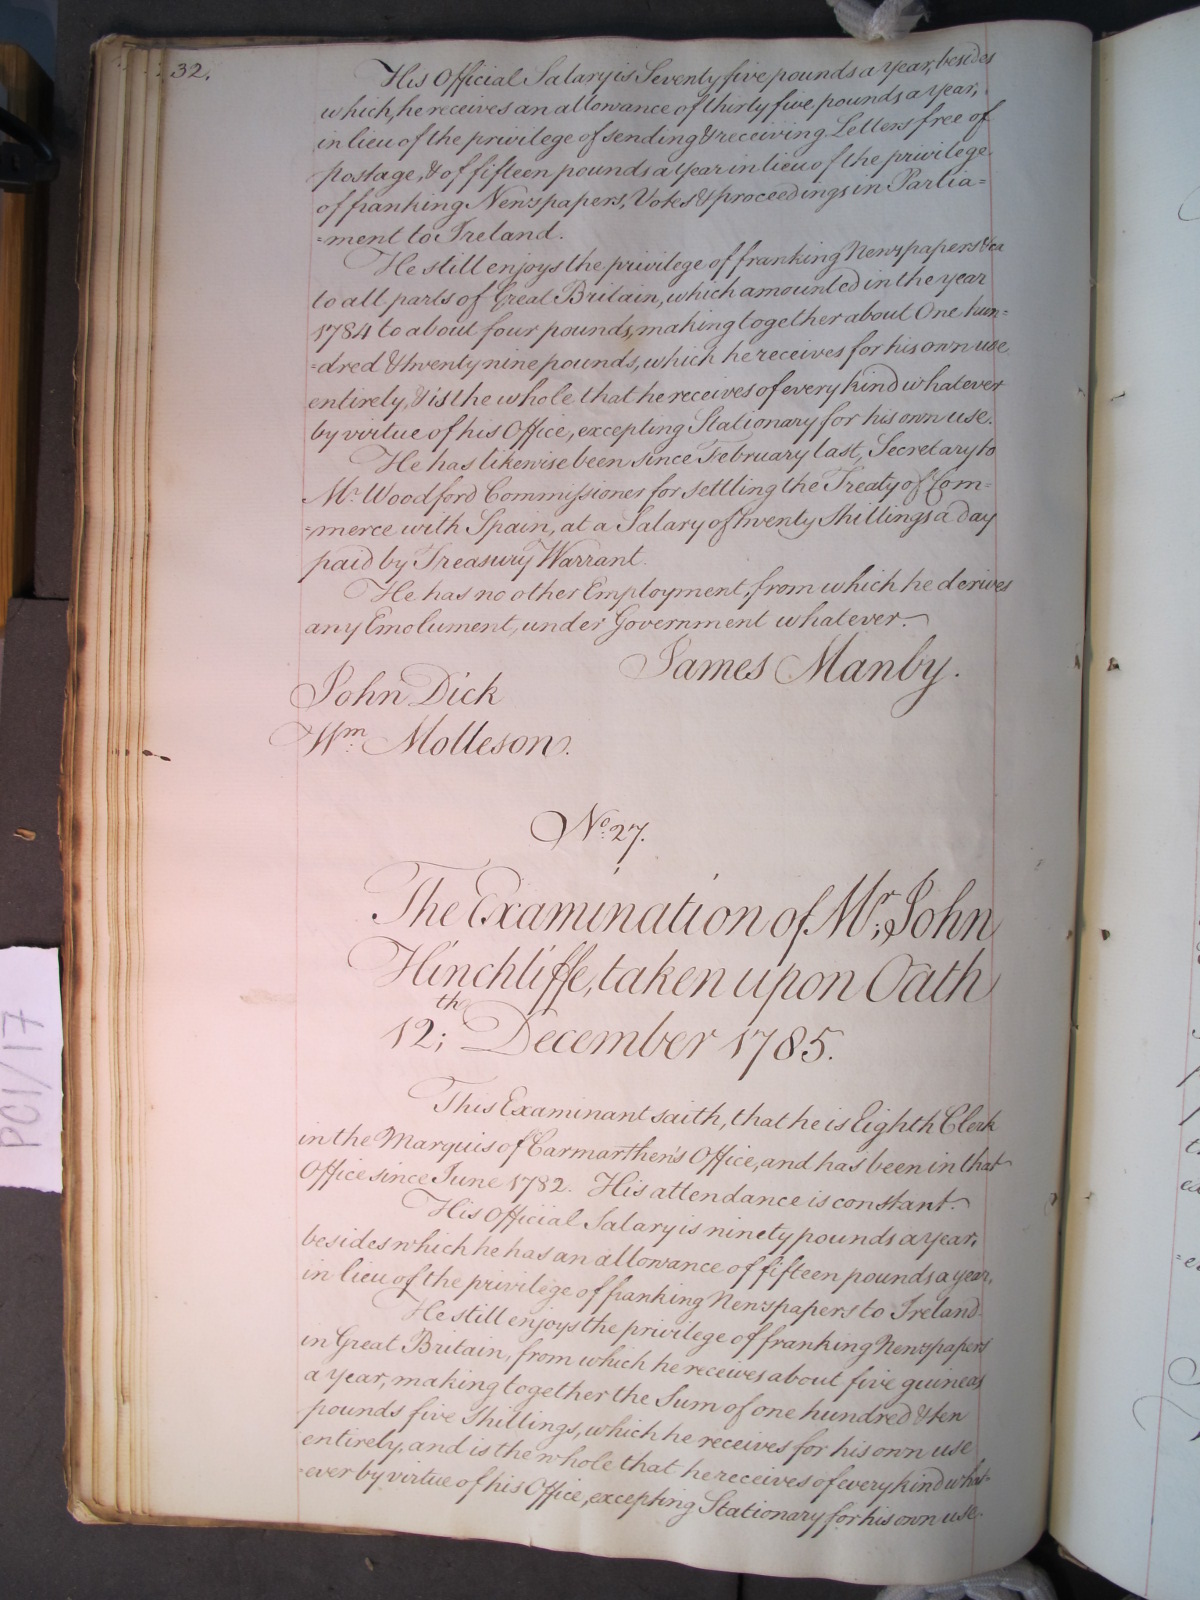 32.
His Official Salary is Seventy five pounds a Year, besides
which, he receives an allowance of thirty five pounds a Year,
in lieu of the privilege of sending & receiving Letters free of
postage, & of fifteen pounds a Year in lieu of the privilege
of franking Newspapers, Votes & proceedings in Parlia=
=ment to Ireland.
He still enjoys the privilege of franking Newspapers &ca
to all parts of Great Britain, which amounted in the year
1784 to about four pounds, making together about One hun=
=dred & twenty nine pounds, which he receives for his own use
entirely, & is the whole that he receives of every kind whatever
by virtue of his Office, excepting Stationary for his own use.
He has likewise been since February last, Secretary to
Mr. Woodford Commissioner for settling the Treaty of Com=
=merce with Spain, at a Salary of twenty Shillings a day
paid by Treasury Warrant.
He has no other Employment, from which he derives
any Emolument, under Government whatever.
James Manby.
John Dick
Wm. Molleson.
No. 27.
The Examination of Mr. John
Hinchliffe, taken upon Oath
12th; December 1785.
This Examinant saith, that he is Eighth Clerk
in the Marquis of Carmarthen's Office, and has been in that
Office since June 1782. His attendance is constant.
His Official Salary is ninety pounds a year,
besides which he has an allowance of fifteen pounds a year,
in lieu of the privilege of franking Newspapers to Ireland.
He still enjoys the privilege of franking Newspapers
in Great Britain, from which he receives about five guineas
a Year, making together the Sum of one hundred & ten
pounds five Shillings, which he receives for his own use
entirely, and is the whole that he receives of every kind what=
=ever by virtue of his Office, excepting Stationary for his own use.
PC1/17